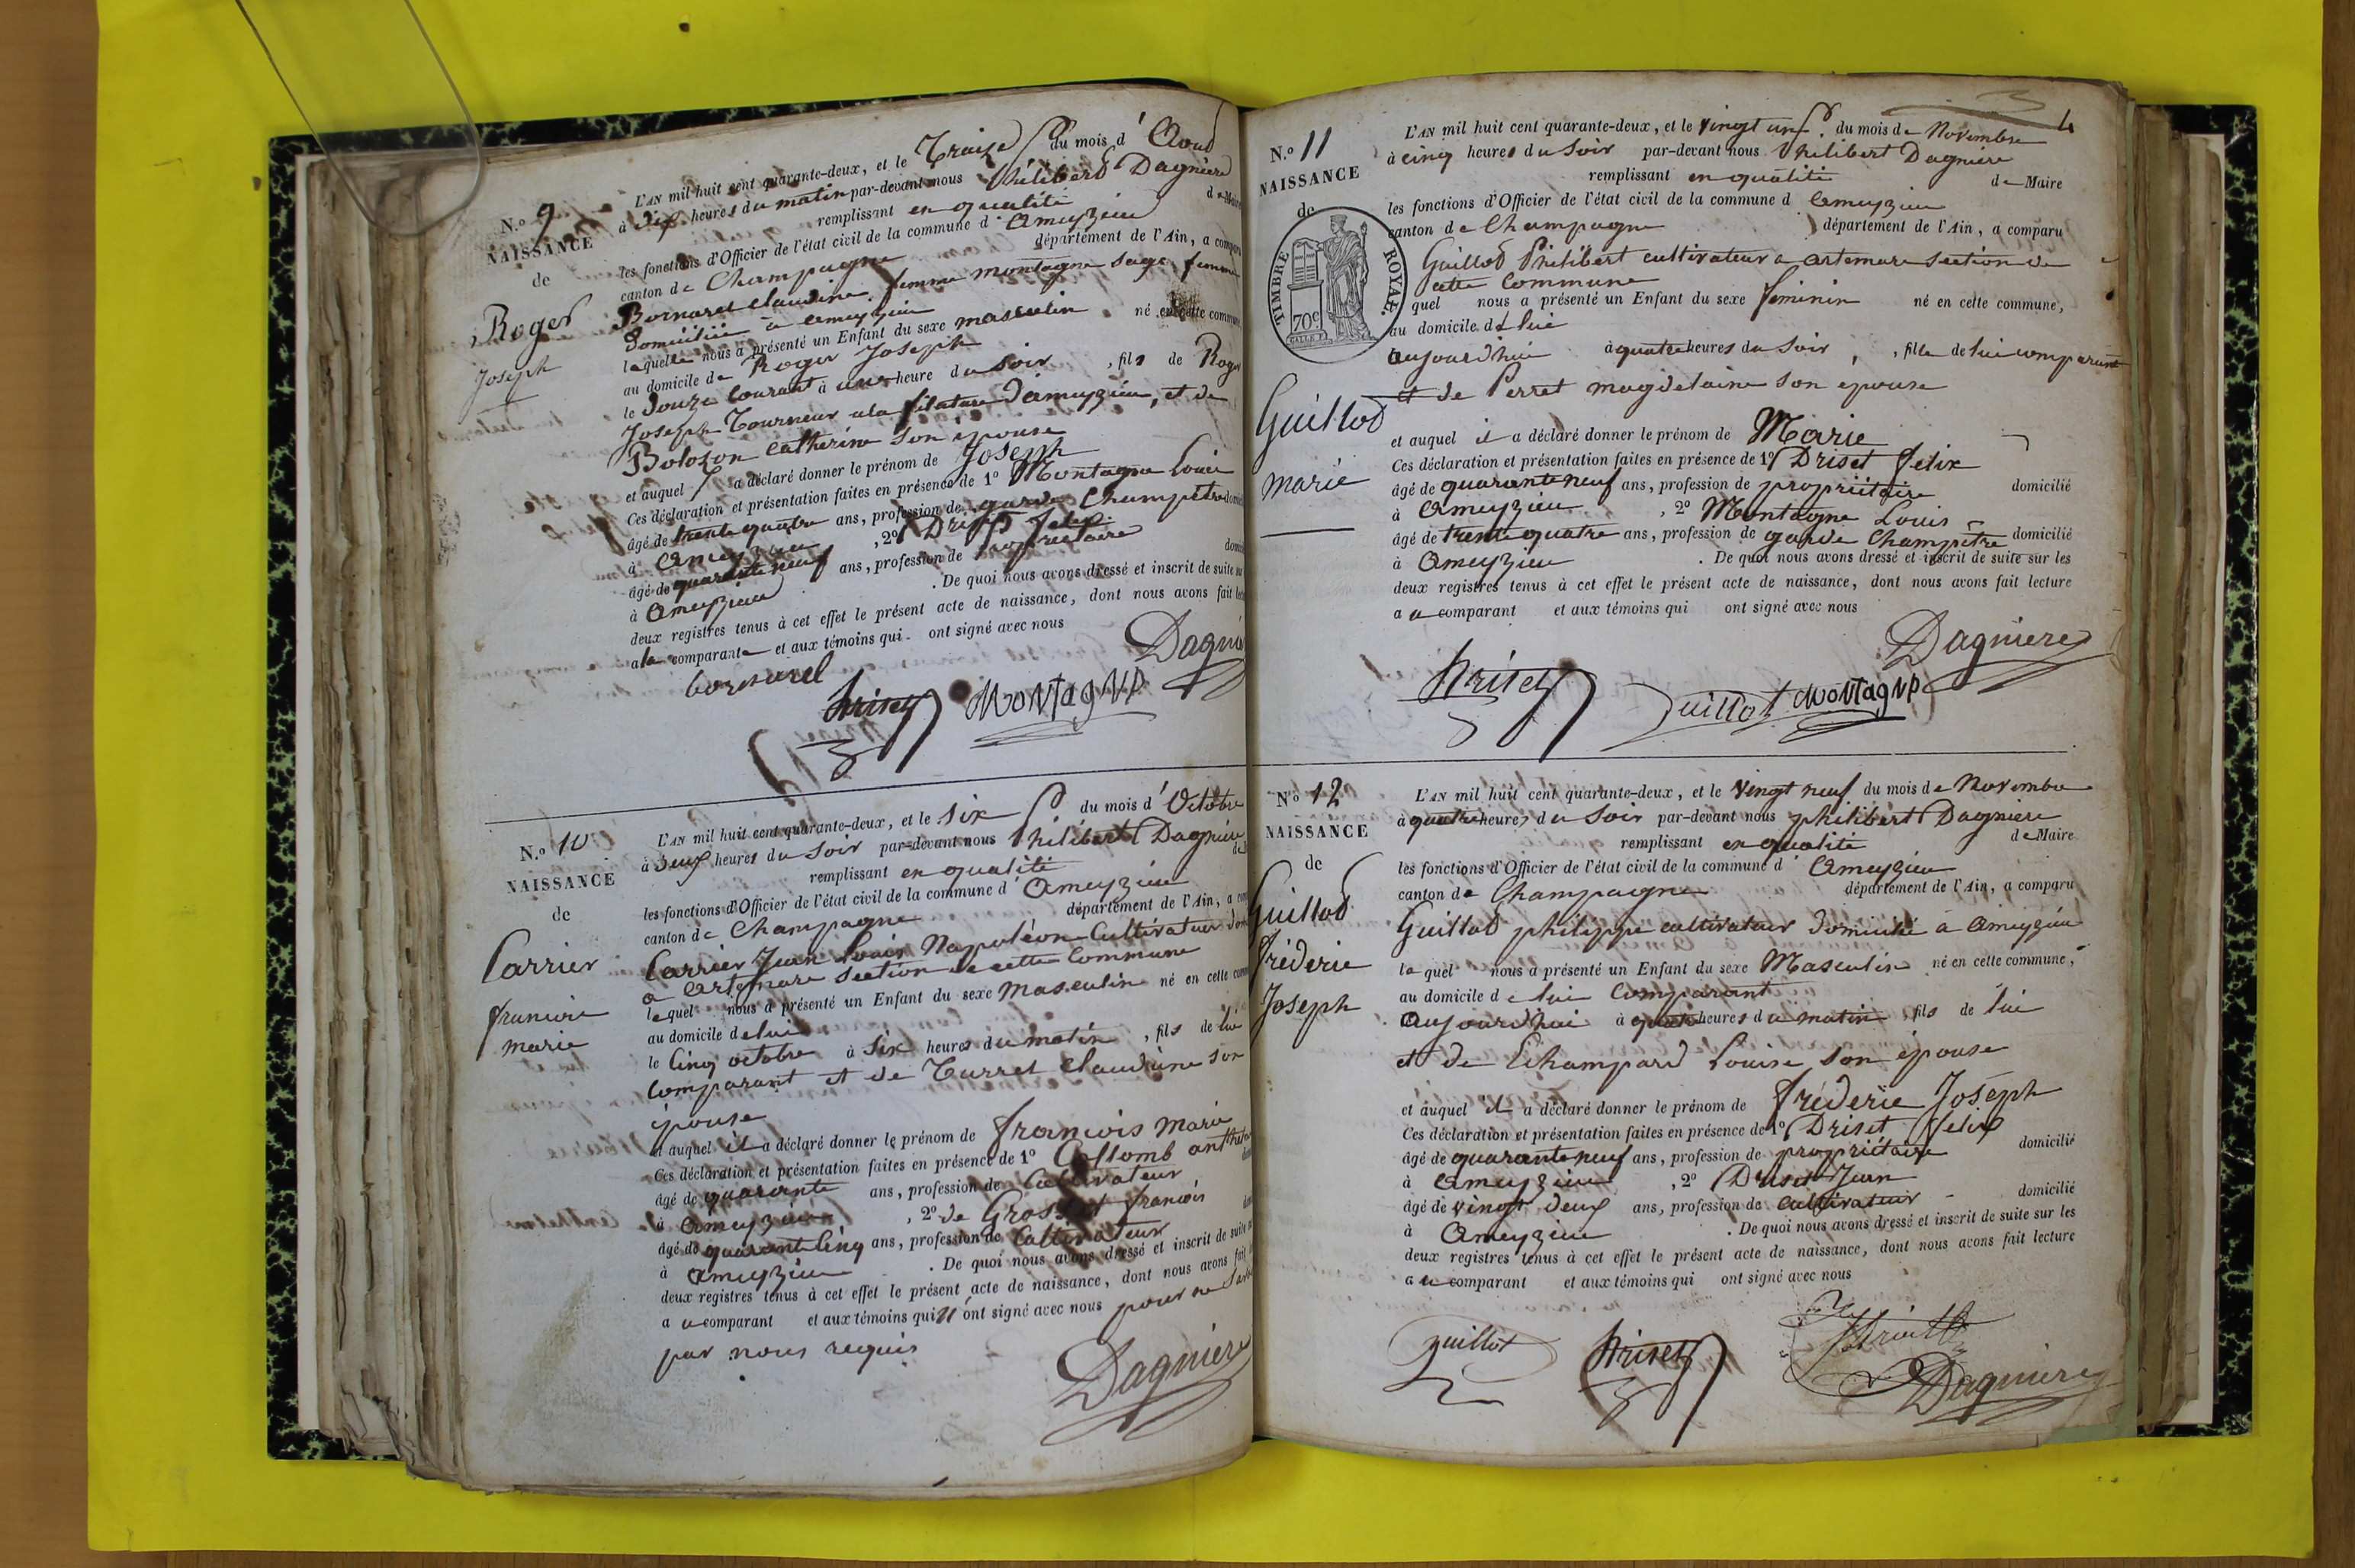 N.o 9
NAISSANCE
de
Roger
Joseph
L'AN mil huit cent quarante-deux, et le Traize du mois d' Aout
à dix heures du matin par-devant nous Philibert Dagniere
remplissant en qualité de Maire
les fonctions d'Officier de l'état civil de la commune d' Ameyzieu
canton de Champagne département de l'Ain, a comparu
Bornarel Claudine femme montagne sage femme
domiciliée a ameyzieu
laquelle nous a présenté un Enfant du sexe masculin né en cette commune,
au domicile de Roger Joseph
le douze Courant à une heure du soir, fils de Roger
Joseph Tourneur a la filature d'ameyzieu, et de
Bolozon Catherine son epouse
et auquel a déclaré donner le prénom de Joseph
Ces déclaration et présentation faites en présence de 1º Montagne Louis
âgé de trente quatre ans, profession de garde Champêtre
à Ameyzieu, 2º Driset felix
âgé de quarante neuf ans, profession de propriétaire
à Ameyzieu. De quoi nous avons dressé et inscrit de suite sur
deux registres tenus à cet effet le présent acte de naissance, dont nous avons fait
a la comparante et aux témoins qui ont signé avec nous
bornarel Driset MONTAGNE Dagnie
N.o 10
NAISSANCE
de
Carrier
francois
marie
L'AN mil huit cent quarante-deux, et le six du mois d' Octobre
à deux heures du soir par-devant nous Philibert Dagniere
remplissant en qualité
les fonctions d'Officier de l'état civil de la commune d' Ameyzieu
canton de Champagne département de l'Ain, a
Carrier Jean Louis Napoléon Cultivateur
a artemare section de cette Commune
lequel nous a présenté un Enfant du sexe Masculin né en cette
au domicile de lui
le Cinq octobre à six heures du matin, fils de lui
comparant et de Turrel Claudine son
épouse
et auquel il a déclaré donner le prénom de francois marie
Ces déclaration et présentation faites en présence de 1º Collomb
âgé de quarante ans, profession de Cultivateur
à Ameyzieu, 2º de Grosset francois
âgé de quarante Cinq ans, profession de Cultivateur
à Ameyzieu. De quoi nous avons dressé et inscrit de suite
deux registres tenus à cet effet le présent acte de naissance, dont nous avons fait
a u comparant et aux témoins qui n' ont signé avec nous pour ne
par nous requis
Dagniere
4
N.o 11
NAISSANCE
de
TIMBRE ROYAL.
70c
Guillod
marie
L'AN mil huit cent quarante-deux, et le vingt un du mois de Novembre
à cinq heures du soir par-devant nous Philibert Dagniere
remplissant en qualité de Maire
les fonctions d'Officier de l'état civil de la commune d' Ameyzieu
canton de Champagne département de l'Ain, a comparu
Guillod Philibert cultivateur a artemare section de
cette Commune
quel nous a présenté un Enfant du sexe feminin né en cette commune,
au domicile de lui
aujourd'hui à quatre heures du soir, fille de lui comparant
et de Perret magdelaine son épouse
et auquel il a déclaré donner le prénom de Marie
Ces déclaration et présentation faites en présence de 1º Driset felix
âgé de quarante neuf ans, profession de propriétaire domicilié
à Ameyzieu, 2º Montagne Louis
âgé de trente quatre ans, profession de garde Champêtre domicilié
à Ameyzieu. De quoi nous avons dressé et inscrit de suite sur les
deux registres tenus à cet effet le présent acte de naissance, dont nous avons fait lecture
a u comparant et aux témoins qui ont signé avec nous
Dagniere
Driset Guillot MONTAGNE
No 12
NAISSANCE
de
Guillod
fréderic
Joseph
L'AN mil huit cent quarante-deux, et le vingt neuf du mois de Novembre
à quatre heures du soir par-devant nous philibert Dagniere
remplissant en qualité de Maire
les fonctions d'Officier de l'état civil de la commune d' Ameyzieu
canton de Champagne département de l'Ain, a comparu
Guillod philippe cultivateur domicilié a Ameyzieu
lequel nous a présenté un Enfant du sexe Masculin né en cette commune,
au domicile de lui Comparant
aujourd'hui à quatre heures du matin, fils de lui
et de Echampard Louise son épouse
et auquel il a déclaré donner le prénom de fréderic Joseph
Ces déclaration et présentation faites en présence de 1º Driset felix
âgé de quarante neuf ans, profession de propriétaire domicilié
à Ameyzieu, 2º Driset Jean
âgé de vingt deux ans, profession de cultivateur domicilié
à Ameyzieu. De quoi nous avons dressé et inscrit de suite sur les
deux registres tenus à cet effet le présent acte de naissance, dont nous avons fait lecture
a u comparant et aux témoins qui ont signé avec nous
guillot Driset
Dagniere